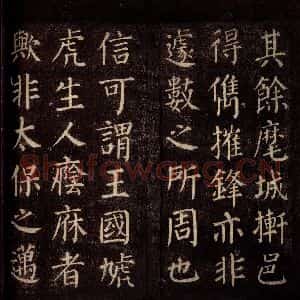 其餘麾城搟邑
得儁摧鋒亦非
遽數之所周也
信可謂王國虓
虎生人癊庥者
歟非太保之邁
Shufawang.CN